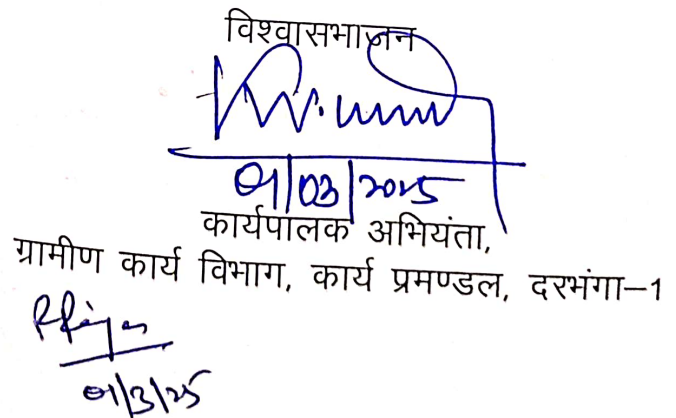 विश्वासभाजन
01/03/2025
कार्यपालक अभियंता,
ग्रामीण कार्य विभाग, कार्य प्रमण्डल, दरभंगा–1
01/3/25